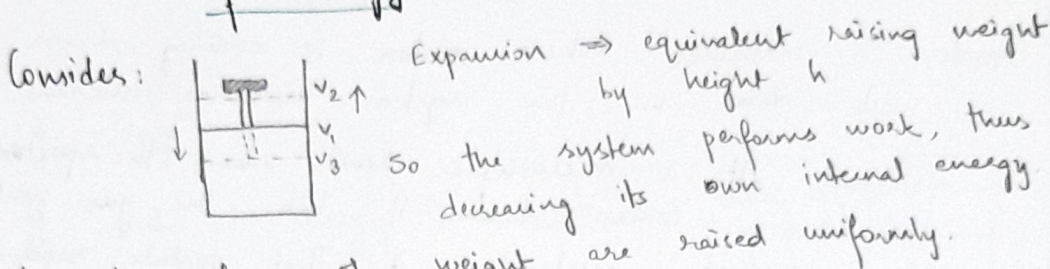 Consider:
Expansion ⇒ equivalent raising weight
by height h
V2 ↑
V1
↓ V3
So the system performs work, thus
decreasing its own internal energy.
weight are raised uniformly.